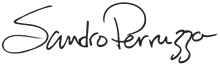 Sandro Perruzza